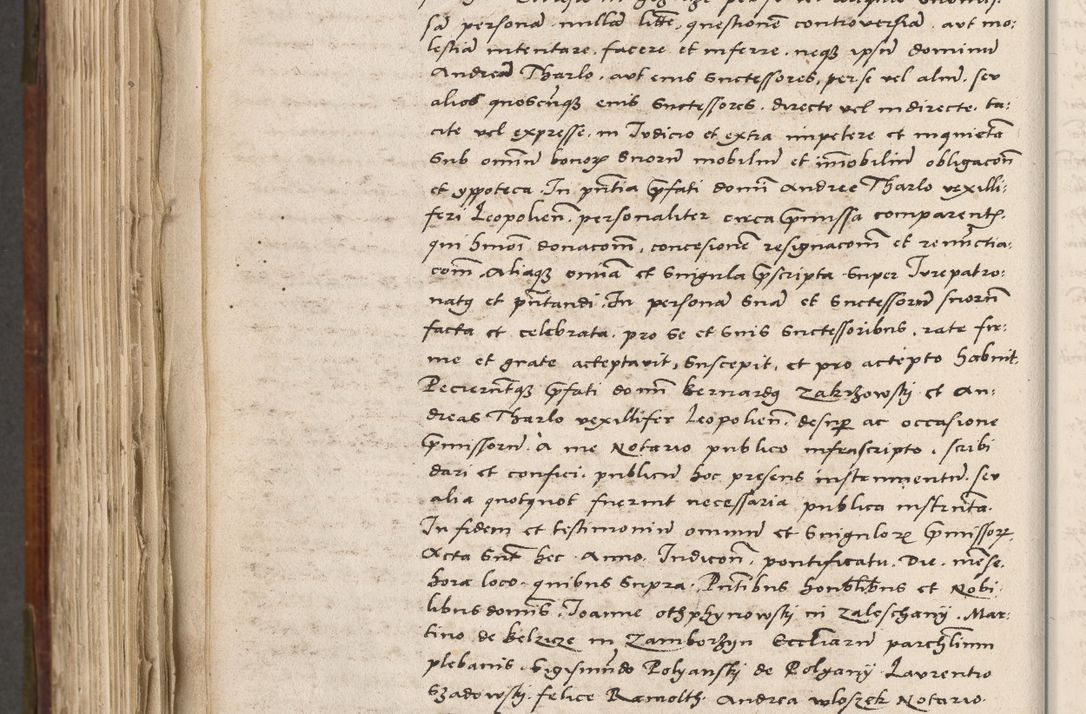 sā personā nullā litē, questionē controversiā, aut mo:
lestiā intentare, facere et inferre, neqʒ ipsū dominū
Andreā Tharlo, aut eius Snctessores, per se vel aliū, seu
alios quoscūqʒ eius Snctessores, directe vel indirecte, ta:
cite vel expresse, in Iudicio et extra impetere et inquietā
Sub omniū bonorꝝ Suorū mobiliū et īmobiliū obligacōn
et yppoteca. In pn̄tia p̄fati domī Andree Tharlo vexilli:
feri Leopolień. personaliter circa p̄missa comparentꝭ.
qui hmōi donacoń, concesionē resignacoń et renūctia:
coń. Aliaqʒ omīa et Singula p̄scripta super Iurepatro:
natꝯ et pn̄tandi. In personā Suā et Snctessorū suorū
facta et celebrata, pro se et Suis Snctessoribus, rate fir:
me et grate acteptavit, Suscepit, et pro actepto habuit.
Pecierūtqʒ p̄fati domī Bernardꝯ Zakrzowskj et An:
dreas Tharlo vexillifer Leopolień. desuꝑ ac occasione
p̄missorū. A me Notario publico infrascripto, scribi
dari et confici, publicū hoc presens instrumentū, seu
alia quotquot fuerint necessaria publica instrn̄ta.
In fidem et testimoniū omniū et Singulorꝝ p̄missorꝝ.
Acta Sūt hec. Anno. Indicōn, pontificatu. Die. mēse.
hora loco. quibus Supra. Pn̄tibus honōlibus et Nobi:
libus domīs. Joanne othphynowskj in Zaleschanÿ. Mar:
tino de Belzicze in Zamborzyn Eccl̄iarū parchl̄ium
plebanis. Sigismūdo Polyanskj de Polganÿ. Laurentio
Szadowskj. felice Ramolth. Andrea wloszek Notario.